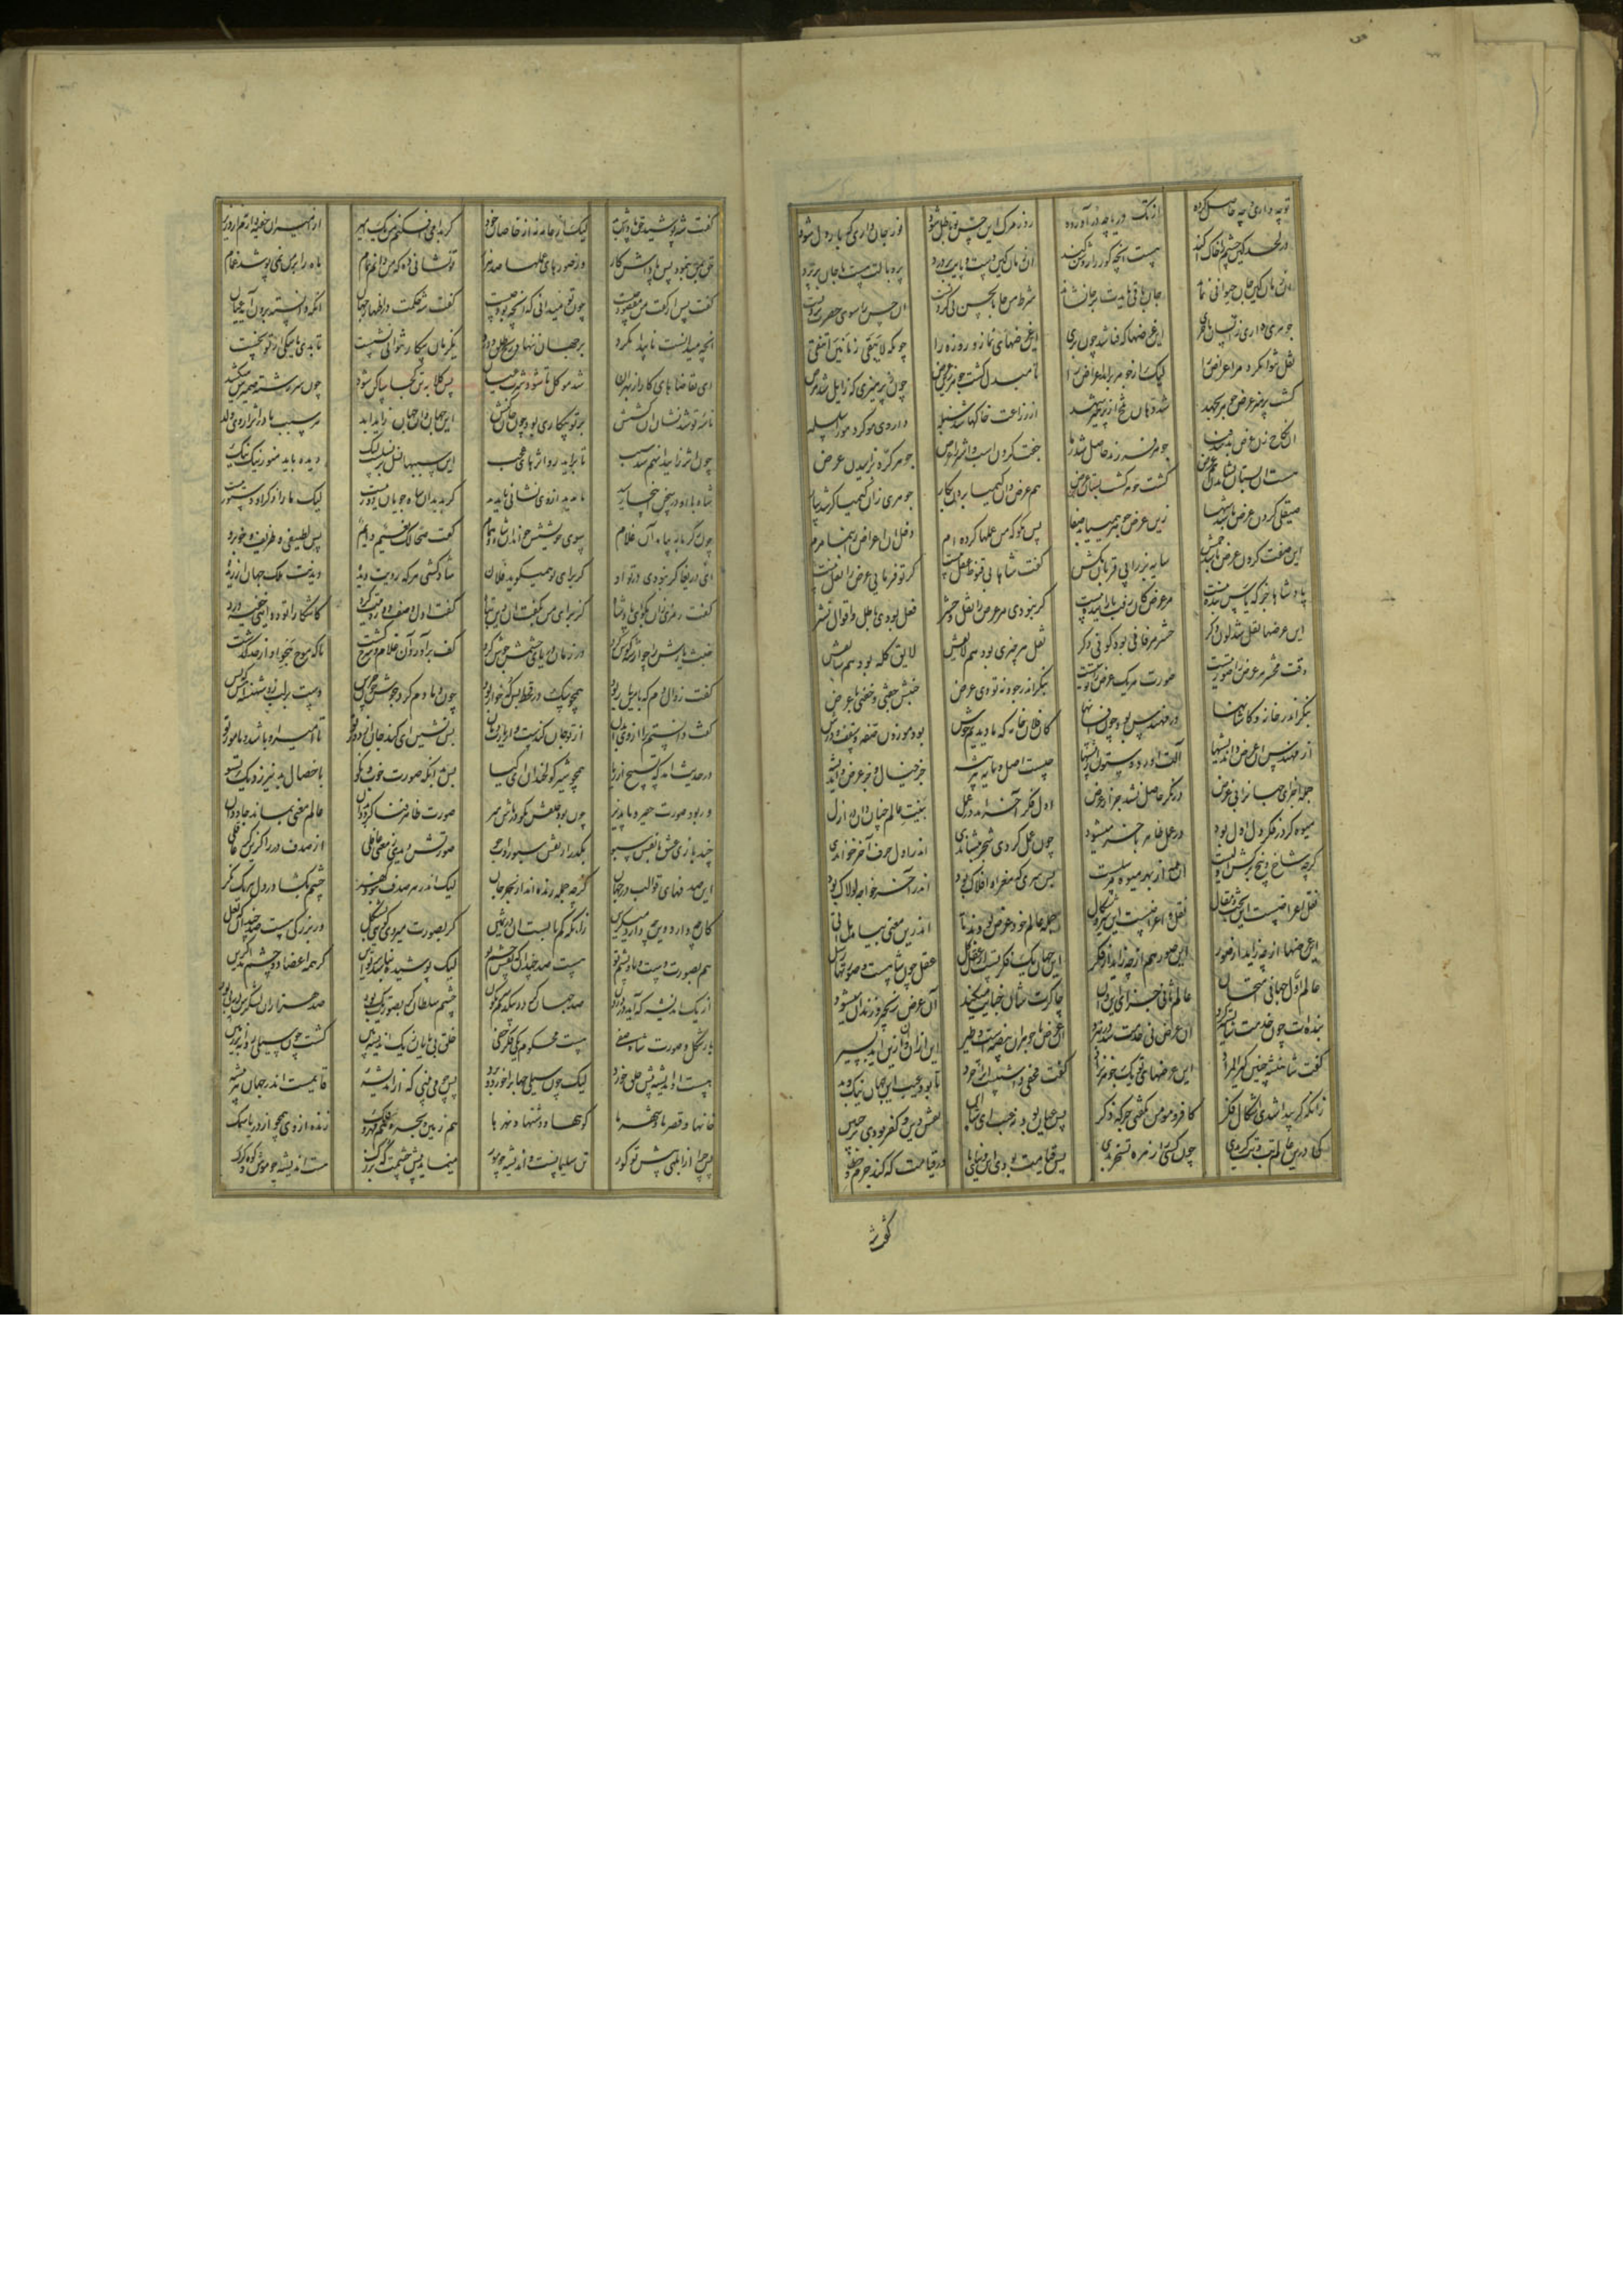 تو چه داری و چه حاصل کرده از تک دریا چه در آورده روز مرگ این حس تو باطل شود نور جان داری که یار دل شود
در لحد کین چشم را خاک آکند هست آنچه گور را روشن کند آن زمان کین دست و پایت بردرد پر و بالت هست تا جان برپرد
آن زمان کین جان حیوانی نماند جان باقی بایدت بر جا نشاند شرط من جا بالحسن نی کردنست آن حسن را سوی حضرت بردنست
جوهری داری ز انسان یا خری این عرضها که فنا شد چون بری این عرضهای نماز و روزه را چونکه لایبقی زمانین انتفی
نقل نتوان کرد مر اعراض را لیک از جوهر برند امراض را تا مبدل گشت جوهر زین عرض چون ز پرهیزی که زایل شد مرض
گشت پرهیز عرض جوهر بجهد شد دهان تلخ از پرهیز شهد از زراعت خاکها شد سنبله داروی مو کرد مو را سلسله
آن نکاح زن عرض بد شد فنا جوهر فرزند حاصل شد ز ما جفت کردن اسب و اشتر را عرض جوهر کره بزاییدن غرض
هست آن بستان نشاندن هم عرض گشت جوهر کشت بستان نک غرض هم عرض دان کیمیا بردن بکار جوهری زان کیمیا گر شد بیار
صیقلی کردن عرض باشد شها زین عرض جوهر همی زاید صفا پس مگو که من عملها کرده ام دخل آن اعراض را بنما مرم
این صفت کردن عرض باشد خمش سایه بز را پی قربان مکش گفت شاها بی قنوط عقل نیست گر تو فرمایی عرض را نقل نیست
پادشاها جز که یاس بنده نیست هر عرض کان رفت باز آینده نیست گر نبودی مر عرض را نقل و حشر فعل بودی باطل و اقوال قشر
این عرضها نقل شد لون دگر حشر هر فانی بود کونی دگر نقل هر چیزی بود هم لایقش لایق گله بود هم سایقش
وقت محشر هر عرض را صورتیست صورت هر یک عرض را نوبتیست بنگر اندر خود نه تو بودی عرض جنبش جفتی و جفتی با غرض
بنگر اندر خانه و کاشانها در مهندس بود چون افسانها کان فلان خانه که ما دیدیم خوش بود موزون صفه و سقف و درش
از مهندس آن عرض و اندیشها آلت آورد و ستون از بیشها چیست اصل و مایه هر پیشه جز خیال و جز عرض و اندیشه
جمله اجزای جهان را بی غرض درنگر حاصل نشد جز از عرض اول فکر آخر آمد در عمل بنیت عالم چنان دان در ازل
میوها در فکر دل اول بود در عمل ظاهر بآخر میشود چون عمل کردی شجر بنشاندی اندر اول حرف آخر خواندی
گرچه شاخ و بیخ و برگش اولست آن همه از بهر میوه مرسلست پس سری که مغز راه افلاک بود اندر آخر خواجه لولاک بود
نقل اعراضست این بحث و مقال نقل اعراضست این شیر و شکال جمله عالم خود عرض بودند تا اندرین معنی بیامد هل اتی
این عرضها از چه زاید از صور این صور هم از چه زاید از فکر این جهان یک فکرتست از عقل کل عقل چون شاهست و صورتها رسل
عالم اول جهان امتحان عالم ثانی جزای این و آن چاکرت شاها جنایت میکند آن عرض زنجیر و زندان میشود
بنده ات چون خدمت شایسته کرد آن عرض نی خلعتی شد در نبرد این عرض با جوهر آن بیضه است و طیر این از آن و آن ازین زاید بسیر
گفت شاهنشه چنین گیر المراد این عرضهای تو یک جوهر نزاد گفت مخفی داشتست آنرا خرد تا بود غیب این جهان نیک و بد
زانکه گر پیدا شدی اشکال فکر کافر و مومن نگفتی جز که ذکر پس عیان بودی نه غیب ای شاه این نقش دین و کفر بودی بر جبین
کی درین عالم بت و بتگر بدی چون کسی را زهره تسخر بدی پس قیامت بودی این دنیای ما در قیامت که کند جرم و خطا
گفت شه
گفت شه پوشید حق پاداش بد لیک از عامه نه از خاصان خود گر بدامی افکنم من یک امیر از امیران خفیه دارم نه از وزیر
حق بمن بنمود پس پاداش کار وز صورهای عملها صد هزار تو نشانی ده که من دانم تمام ماه را بر من نمی پوشد غمام
گفت پس از گفت من مقصود چیست چون تو میدانی که آنچه بود چیست گفت شه حکمت در اظهار جهان آنکه دانسته برون آید عیان
آنچه میدانست تا پیدا نکرد بر جهان ننهاد رنج طلق و درد یک زمان بیکار نتوانی نشست تا بدی یا نیکی از تو نجست
این تقاضاهای کار از بهر آن شد موکل تا شود سرت عیان پس کلابه تن کجا ساکن شود چون سر رشته ضمیرش میکشد
تاسه تو شد نشان آن کشش بر تو بیکاری بود چون جان کنش این جهان و آن جهان زاید ابد هر سبب مادر اثر از وی ولد
چون اثر زایید آنهم شد سبب تا بزاید زو اثرهای عجب این سببها نسل بر نسلست لیک دیده باید منور نیک نیک
شاه با او در سخن اینجا رسید تا بدید از وی نشانی ناپدید گر بدید آن شاه جویا دور نیست لیک ما را ذکر آن دستور نیست
چون ز گرمابه بیامد آن غلام سوی خویشش خواند آن شاه و همام گفت صحا لک نعیم دایم بس لطیفی و ظریف و خوبرو
ای دریغا گر نبودی در تو آن که برای تو همیگوید فلان شاد گشتی هر که رویت دیدی دیدنت ملک جهان ارزیدی
گفت رمزی زان بگو ای پادشا کز برای من بگفت آن دین تبا گفت اول وصف دو روییت کرد کاشکارا تو دوایی خفیه درد
خبث یارش را چو از شه گوش کرد در زمان دریای خشمش جوش کرد کف برآورد آن غلام و سرخ گشت تا که موج هجو او از حد گذشت
گفت ز اول دم که با من یار بود همچو سگ در قحط بس گه خوار بود چون دمادم کرد هجوش چون جرس دست بر لب زد شهنشاهش که بس
گفت دانستم ترا از وی بدان از تو جان گنده ست و از یارت دهان پس نشین ای گنده جان از دور تو تا امیر او باشد و مامور تو
در حدیث آمد که تسبیح از ریا همچو سبزه گولخن دان ای کیا پس بدانکه صورت خوب و نکو با خصال بد نیرزد یک تسو
ور بود صورت حقیر و ناپذیر چون بود خلقش نکو در پاش میر صورت ظاهر فنا گردد بدان عالم معنی بماند جاودان
چند بازی عشق با نقش سبو بگذر از نقش سبو رو آب جو صورتش دیدی ز معنی غافلی از صدف در را گزین گر عاقلی
این صدفهای قوالب در جهان گرچه جمله زنده اند از بحر جان لیک اندر هر صدف نبود گهر چشم بگشا در دل هر یک نگر
کان چه دارد وین چه دارد میگزین زانکه کمیابست آن در ثمین گر بصورت میروی کوهی بشکل در بزرگی هست صد چندان که لعل
هم بصورت دست و پا و پشم تو هست صد چندان که نقش چشم تو لیک پوشیده نباشد بر تو این کز همه اعضا دو چشم آمد گزین
از یک اندیشه که آید در درون صد جهان گردد بیکدم سرنگون جسم سلطان گر بصورت یک بود صد هزاران لشکرش در پی بود
باز شکل و صورت شاه صفی هست محکوم یکی فکر خفی خلق بی پایان ز یک اندیشه بین گشت چون سیلی روانه بر زمین
هست آن اندیشه پیش خلق خرد لیک چون سیلی جهان را خورد و برد پس چو می بینی که از اندیشه قایمست اندر جهان هر پیشه
خانها و قصرها و شهرها کوهها و دشتها و نهرها هم زمین و بحر و هم مهر و فلک زنده از وی همچو از دریا سمک
پس چرا از ابلهی پیش تو کور تن سلیمانست و اندیشه چو مور مینماید پیش چشمت که بزرگ هست اندیشه چو موش و کوه گرگ